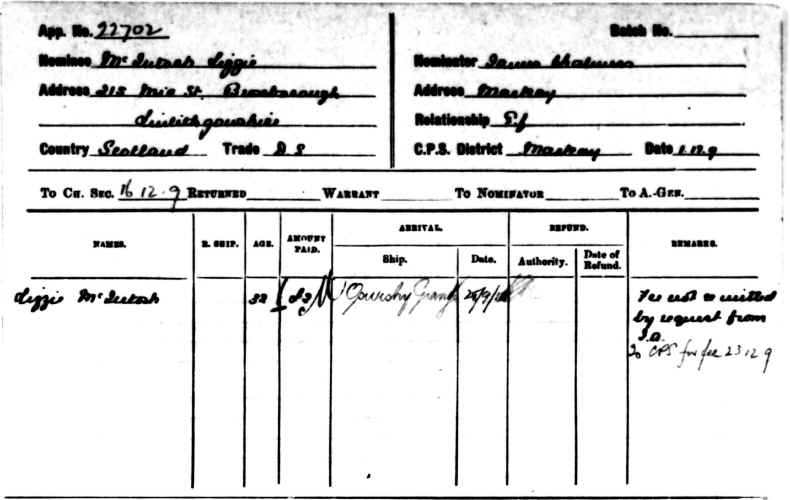 App. No. 22702 Batch No.
Nominee McIntosh Lizzie Nominator James Chalmers
Address 215 Mid St. Borrowstounness Address Mackay
Linlithgowshire Relationship
Country Scotland Trade D S C.P.S. District Mackay Date 1.12.9
To Ch. Sec. 16 12 9 Returned Warrant To Nominator To A.-Gen.
NAMES. R. SHIP. AGE. AMOUNT PAID. ARRIVAL. REFUND. REMARKS.
Ship. Date. Authority. Date of Refund.
Lizzie McIntosh 32 Fee not remitted
by request from
To CPS for fee 23 12 9